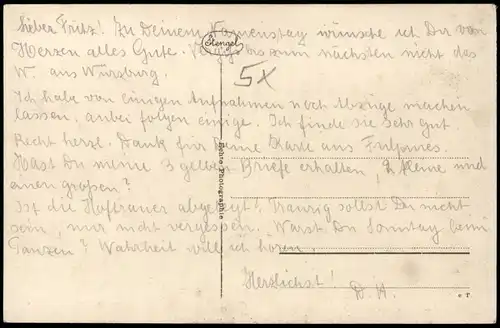 Lieber Fritz! Zu Deinem Namenstag wünsche ich Dir von
Herzen alles Gute. bis zum nächsten nicht das
W. aus Würzburg.
Stengel
5x
Ich habe von einigen Aufnahmen noch Abzüge machen
lassen, anbei folgen einige. Ich finde sie sehr gut.
Recht herzl. Dank für Deine Karte aus Fulpmes.
Hast Du meine 3 gelben Briefe erhalten, 2 kleine und
einen großen?
Ist die abgereist? Traurig sollst Du nicht
sein, nur nicht vergessen. Warst Du Sonntag beim
Tanzen? Wahrheit will ich hören.
Herzlichst! D. H.
Echte Photographie